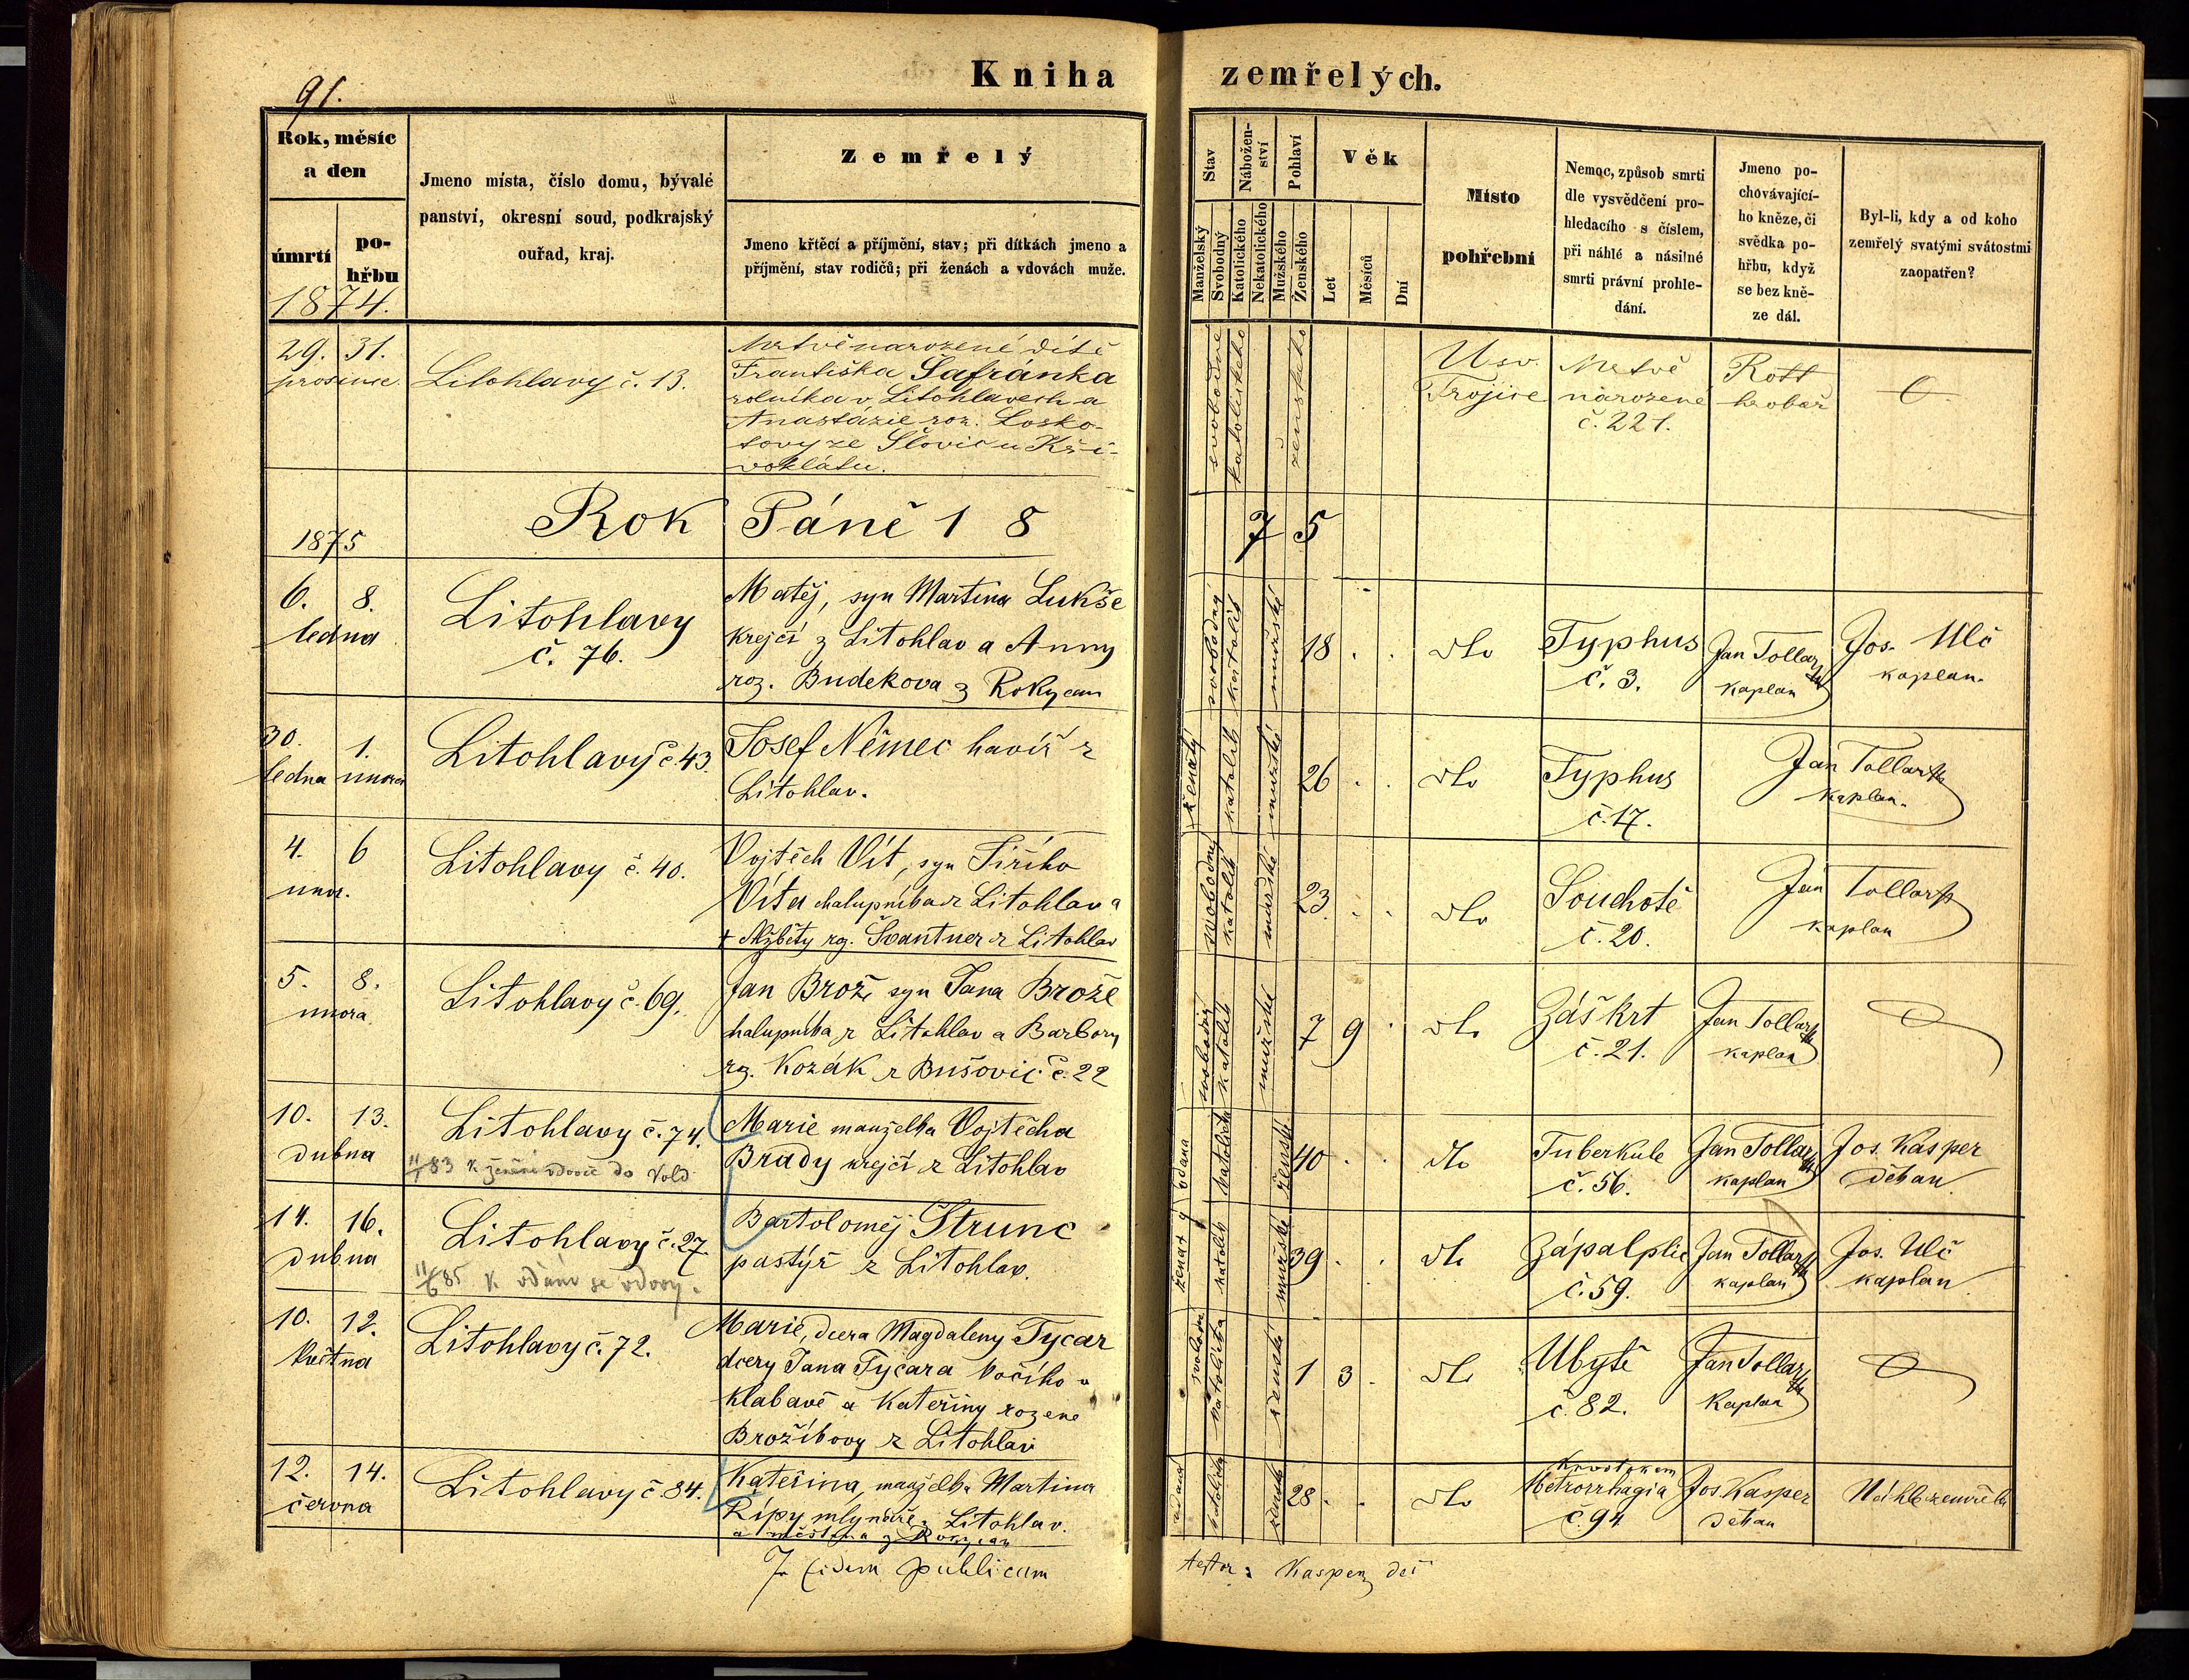 91.
Kniha zemřelých.
Rok, měsíc
a den
úmrtí
po-
hřbu
1874.
Jmeno místa, číslo domu, bývalé
panství, okresní soud, podkrajský
ouřad, kraj.
Zemřelý
Jmeno křtěcí a příjmění, stav; při dítkách jmeno a
příjmění, stav rodičů; při ženách a vdovách muže.
Stav
Manželský
Svobodný
Nábožen-
ství
Katolického
Nekatolického
Pohlaví
Mužského
Ženského
Věk
Let
Měsíců
Dní
Místo
pohřební
Nemoc, způsob smrti
dle vysvědčení pro-
hledacího s číslem,
při náhlé a násilné
smrti právní prohle-
dání.
Jmeno po-
chovávající-
ho kněze, či
svědka po-
hřbu, když
se bez kně-
ze dál.
Byl-li, kdy a od koho
zemřelý svatými svátostmi
zaopatřen?
29. 31.
prosince.
Litohlavy č. 13.
Mrtvě narozené dítě
Františka Šafránka
rolníka v Litohlavech a
Anastázie roz. Losko-
tovy ze Slovic u Kři-
voklátu.
svobodné
katolického
ženského
U sv.
Trojice
Mrtvě
narozené
č. 221.
Rott
hrobař
Rok Páně 1 8 7 5
1875
6. 8.
ledna
Litohlavy
č. 76.
Matěj, syn Martina Lukše
krejčí z Litohlav a Anny
roz. Budekova z Rokycan
svobodný
katolík
mužské
18
dto
Typhus
č. 3.
Jan Tollar
kaplan
Jos. Ulč
kaplan.
30. 1.
ledna února
Litohlavy č. 43.
Josef Němec havíř z
Litohlav.
ženatý
katolík
mužské
26
dto
Typhus
č. 17.
Jan Tollar
kaplan.
4. 6
únor.
Litohlavy č. 40.
Vojtěch Vít, syn Jiřího
Víta chalupníka z Litohlav a
+ Alžběty rz. Švantner z Litohlav
svobodný
katolík
mužské
23.
dto
Souchotě
č. 20.
Jan Tollar
kaplan
5. 8.
února
Litohlavy č. 69.
Jan Brož syn Jana Brože
halupníka z Litohlav a Barbory
rz. Kozák z Bušovic č. 22
svobodný
katolík
mužské
7 9
dto
Záškrt
č. 21.
Jan Tollar
kaplan
10. 13.
dubna
Litohlavy č. 74.
11/83 k ženění vdovce do Vold
Marie manželka Vojtěcha
Brady krejčí z Litohlav
vdana
katolička
ženské
40
dto
Tuberkule
č. 56.
Jan Tollar
kaplan
Jos. Kasper
děkan
14. 16.
dubna
Litohlavy č. 27.
11/6 85 k vdání se vdovy.
Bartoloměj Strunc
pastýř z Litohlav.
ženatý
katolík
mužské
39
dto
Zápal plic
č. 59.
Jan Tollar
kaplan
Jos. Ulč
kaplan
10. 12.
května
Litohlavy č. 72.
Marie, dcera Magdaleny Tycar
dcery Jana Tycara kočího v
Klabavě a Kateřiny rozene
Brožíkovy z Litohlav
svobodná
katolička
ženské
1 3
dto
Ubytě
č. 82.
Jan Tollar
Kaplan
12. 14.
června
Litohlavy č. 84.
Kateřina, manželka Martina
Řípy mlynáře z Litohlav.
a měšťana z Rokycan
vdaná
katolička
ženské
28
dto
Krvotokem
Metrorrhagia
č. 94
Jos. Kasper
děkan
Náhle zemřela
In fidem publicam
testor: Kasper, děk